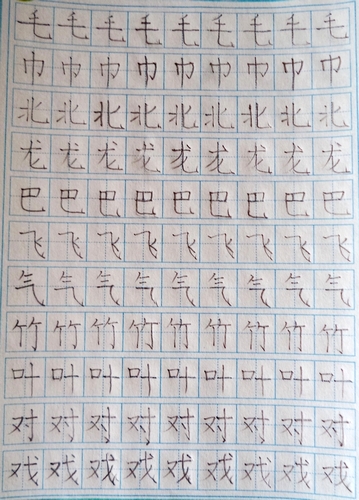 毛毛毛毛毛毛毛毛毛
巾巾巾巾巾巾巾巾巾
北北北北北北北北北
龙龙龙龙龙龙龙龙龙
巴巴巴巴巴巴巴巴巴
飞飞飞飞飞飞飞飞飞
气气气气气气气气气
竹竹竹竹竹竹竹竹竹
叶叶叶叶叶叶叶叶叶
对对对对对对对对对
戏戏戏戏戏戏戏戏戏